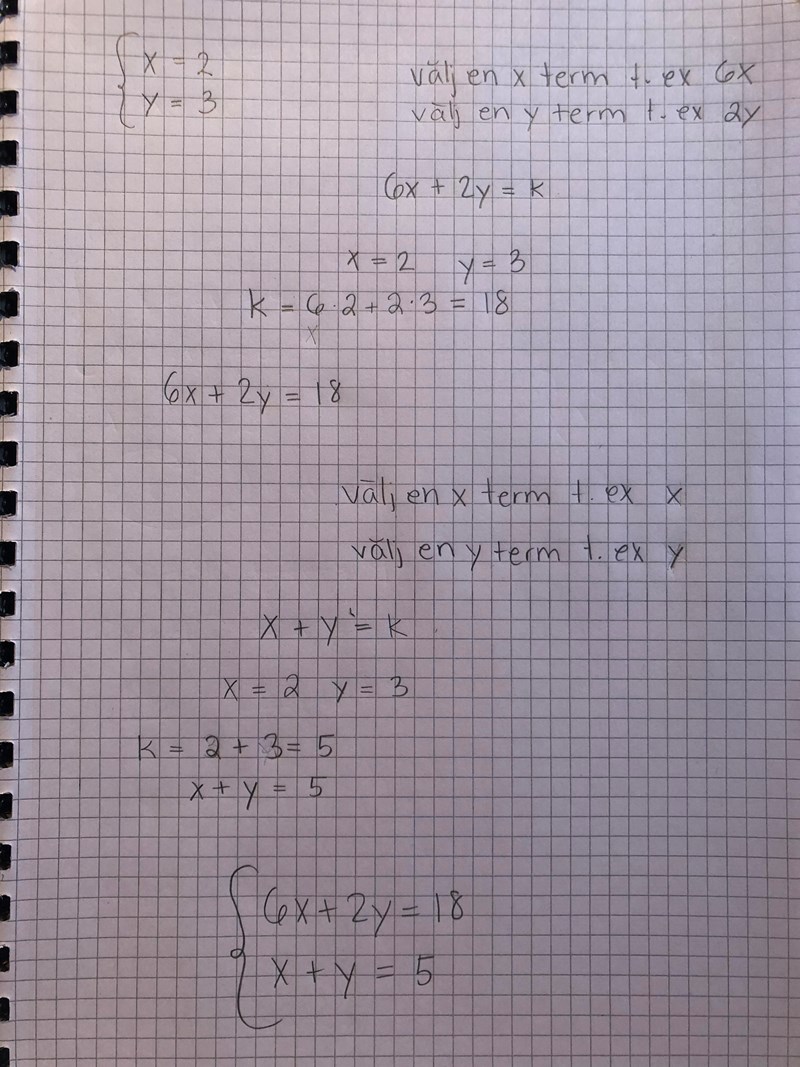 x = 2
y = 3
välj en x term t. ex 6x
välj en y term t. ex 2y
6x + 2y = k
x = 2 y = 3
k = 6·2 + 2·3 = 18
x
6x + 2y = 18
välj en x term t. ex x
välj en y term t. ex y
x + y = k
x = 2 y = 3
k = 2 + 3 = 5
x + y = 5
6x + 2y = 18
x + y = 5